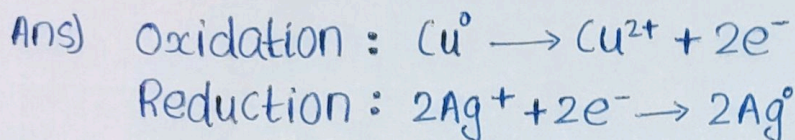 Ans) Oxidation : Cu⁰ ⟶ Cu²⁺ + 2e⁻
Reduction : 2Ag⁺ + 2e⁻ ⟶ 2Ag⁰